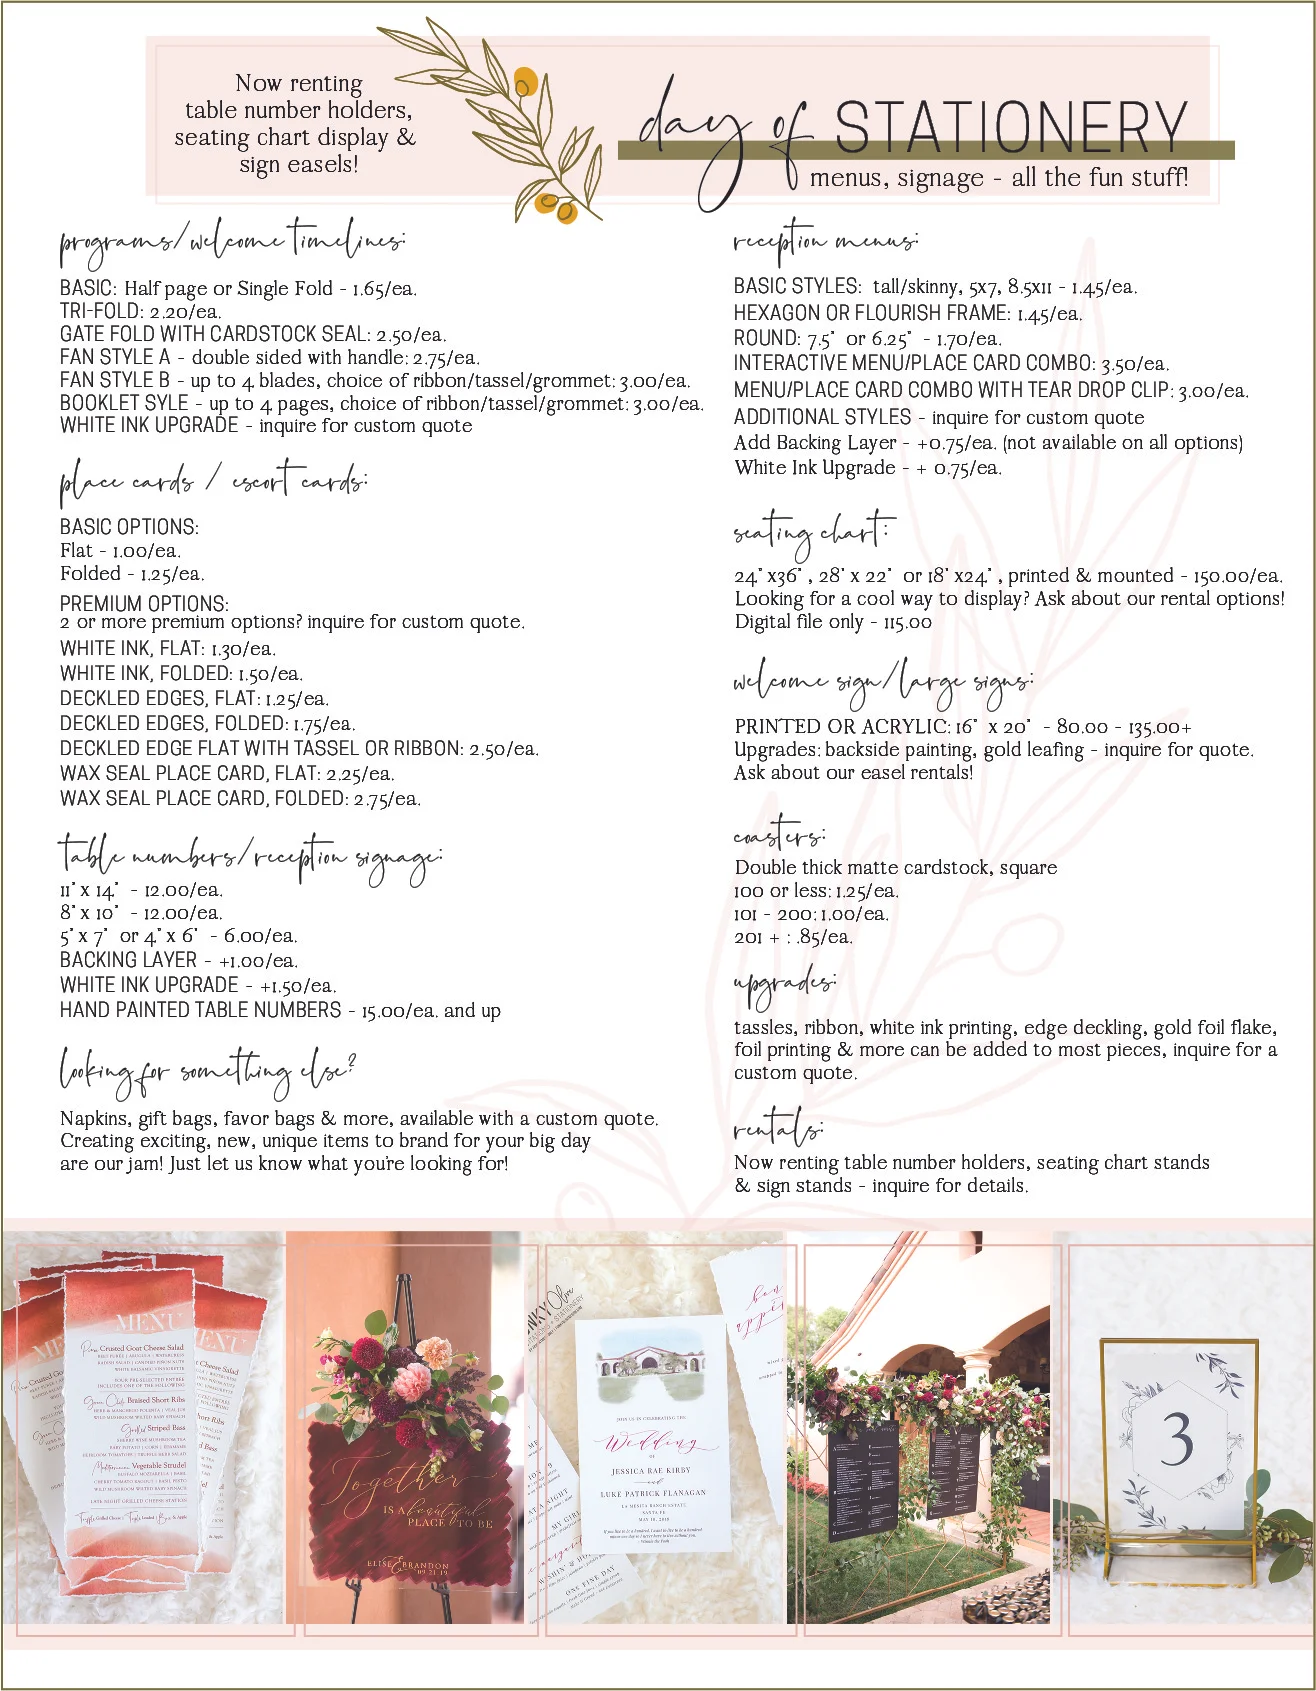 Now renting
table number holders,
seating chart display &
sign easels!
day of STATIONERY
menus, signage - all the fun stuff!
programs/welcome timelines:
BASIC: Half page or Single Fold - 1.65/ea.
TRI-FOLD: 2.20/ea.
GATE FOLD WITH CARDSTOCK SEAL: 2.50/ea.
FAN STYLE A - double sided with handle: 2.75/ea.
FAN STYLE B - up to 4 blades, choice of ribbon/tassel/grommet: 3.00/ea.
BOOKLET SYLE - up to 4 pages, choice of ribbon/tassel/grommet: 3.00/ea.
WHITE INK UPGRADE - inquire for custom quote
place cards / escort cards:
BASIC OPTIONS:
Flat - 1.00/ea.
Folded - 1.25/ea.
PREMIUM OPTIONS:
2 or more premium options? inquire for custom quote.
WHITE INK, FLAT: 1.30/ea.
WHITE INK, FOLDED: 1.50/ea.
DECKLED EDGES, FLAT: 1.25/ea.
DECKLED EDGES, FOLDED: 1.75/ea.
DECKLED EDGE FLAT WITH TASSEL OR RIBBON: 2.50/ea.
WAX SEAL PLACE CARD, FLAT: 2.25/ea.
WAX SEAL PLACE CARD, FOLDED: 2.75/ea.
table numbers/reception signage:
11" x 14" - 12.00/ea.
8" x 10" - 12.00/ea.
5" x 7" or 4" x 6" - 6.00/ea.
BACKING LAYER - +1.00/ea.
WHITE INK UPGRADE - +1.50/ea.
HAND PAINTED TABLE NUMBERS - 15.00/ea. and up
looking for something else?
Napkins, gift bags, favor bags & more, available with a custom quote.
Creating exciting, new, unique items to brand for your big day
are our jam! Just let us know what you're looking for!
reception menus:
BASIC STYLES: tall/skinny, 5x7, 8.5x11 - 1.45/ea.
HEXAGON OR FLOURISH FRAME: 1.45/ea.
ROUND: 7.5" or 6.25" - 1.70/ea.
INTERACTIVE MENU/PLACE CARD COMBO: 3.50/ea.
MENU/PLACE CARD COMBO WITH TEAR DROP CLIP: 3.00/ea.
ADDITIONAL STYLES - inquire for custom quote
Add Backing Layer - +0.75/ea. (not available on all options)
White Ink Upgrade - + 0.75/ea.
seating chart:
24" x36", 28" x 22" or 18" x24", printed & mounted - 150.00/ea.
Looking for a cool way to display? Ask about our rental options!
Digital file only - 115.00
welcome sign/large signs:
PRINTED OR ACRYLIC: 16" x 20" - 80.00 - 135.00+
Upgrades: backside painting, gold leafing - inquire for quote.
Ask about our easel rentals!
coasters:
Double thick matte cardstock, square
100 or less: 1.25/ea.
101 - 200: 1.00/ea.
201 + : .85/ea.
upgrades:
tassles, ribbon, white ink printing, edge deckling, gold foil flake,
foil printing & more can be added to most pieces, inquire for a
custom quote.
rentals:
Now renting table number holders, seating chart stands
& sign stands - inquire for details.
MENU
Crusted Goat Cheese Salad
Braised Short Ribs
Striped Bass
Vegetable Strudel
LATE NIGHT GRILLED CHEESE STATION
Together
IS A beautiful
PLACE TO BE
ELISE & BRANDON
09.21.19
JOIN US IN CELEBRATING THE
Wedding
OF
JESSICA RAE KIRBY
and
LUKE PATRICK FLANAGAN
LA MESITA RANCH ESTATE
SANTA FE
MAY 18, 2019
ONE FINE DAY
3